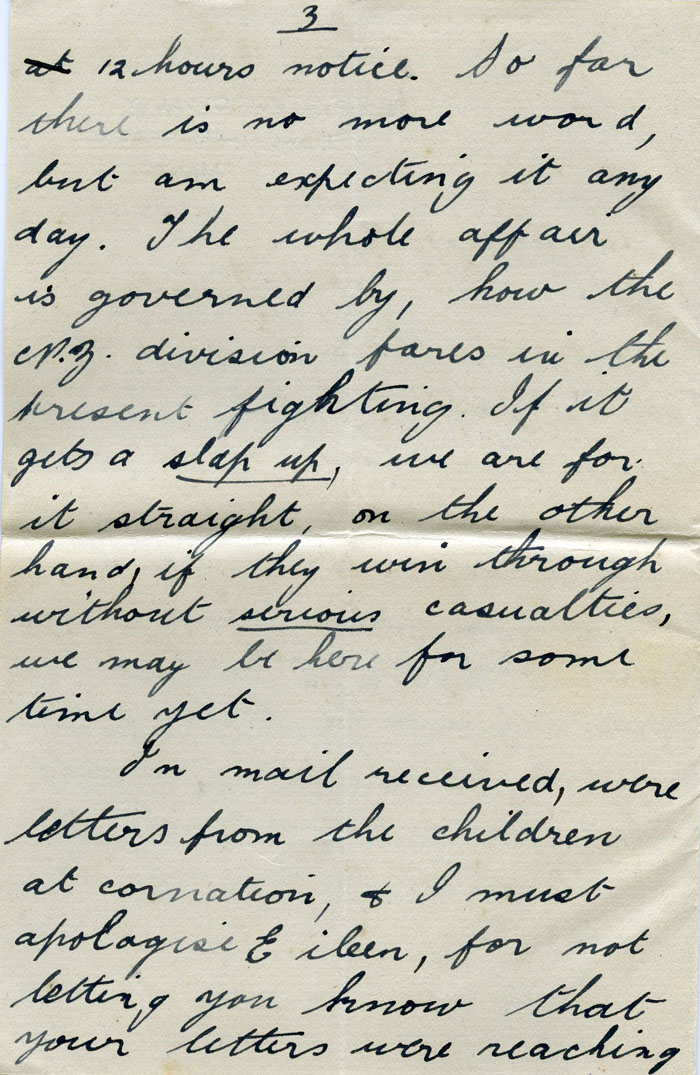 3
at 12 hours notice. So far
there is no more word,
but am expecting it any
day. The whole affair
is governed by, how the
N.Z. division fares in the
present fighting. If it
gets a slap up, we are for
it straight, on the other
hand, if they win through
without serious casualties,
we may be here for some
time yet.
In mail received, were
letters from the children
at cornation, & I must
apologise Eileen, for not
letting you know that
your letters were reaching